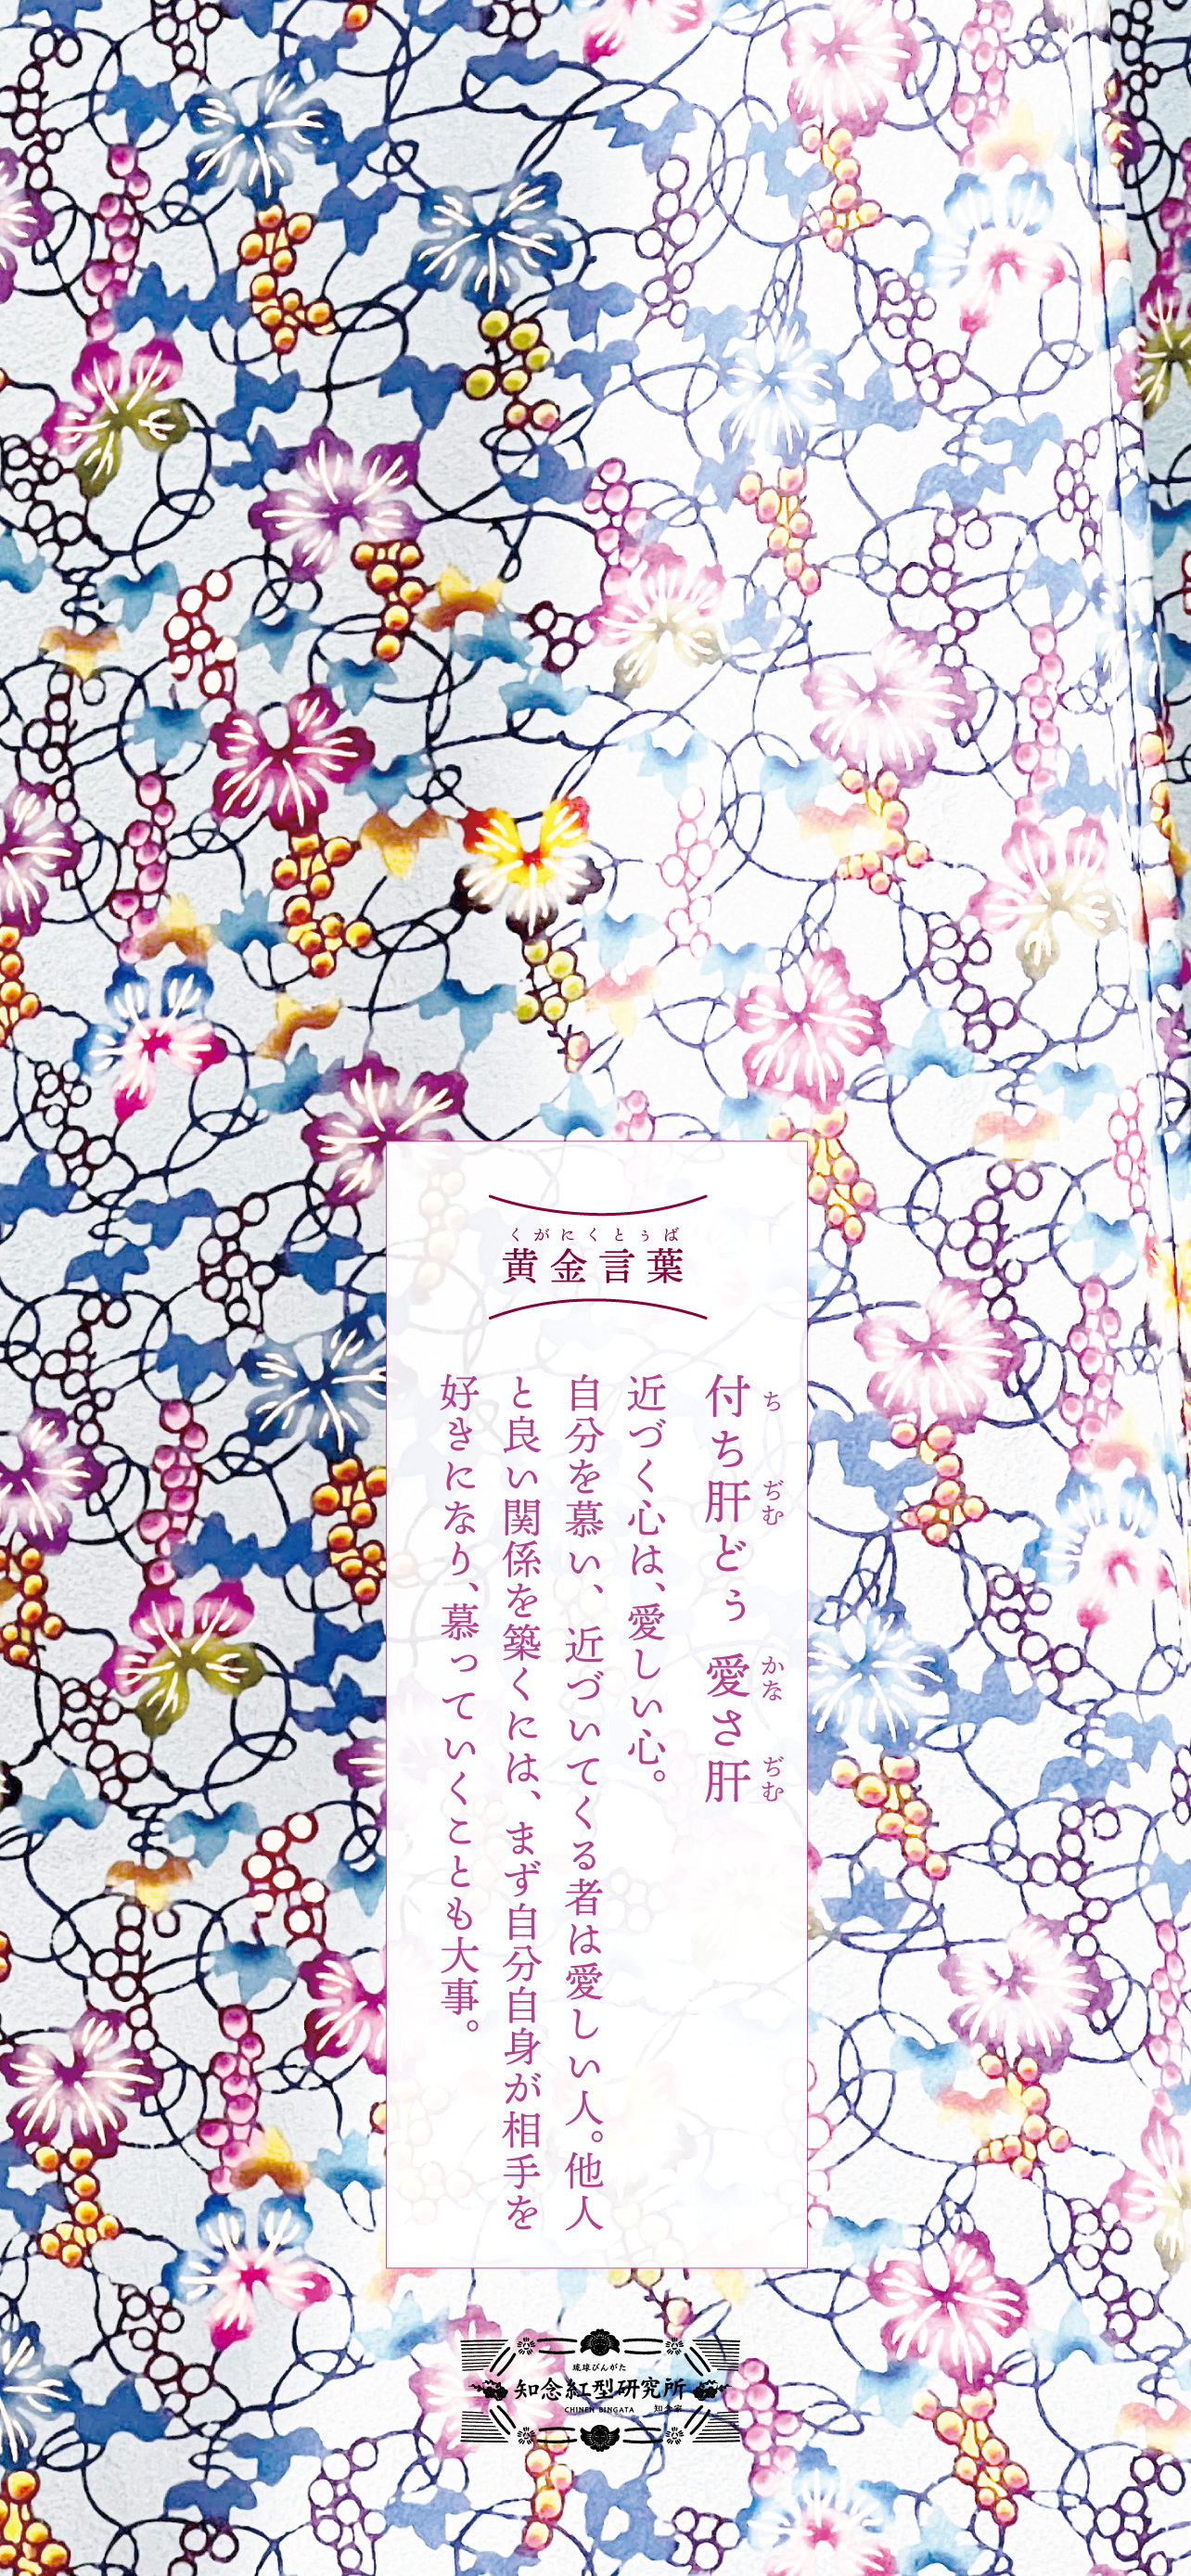 くがにくとぅば
黄金言葉
付ち肝どぅ 愛さ肝
ち ぢむ かな ぢむ
近づく心は、愛しい心。
自分を慕い、近づいてくる者は愛しい人。他人
と良い関係を築くには、まず自分自身が相手を
好きになり、慕っていくことも大事。
琉球びんがた
知念紅型研究所
CHINEN BINGATA 知念家